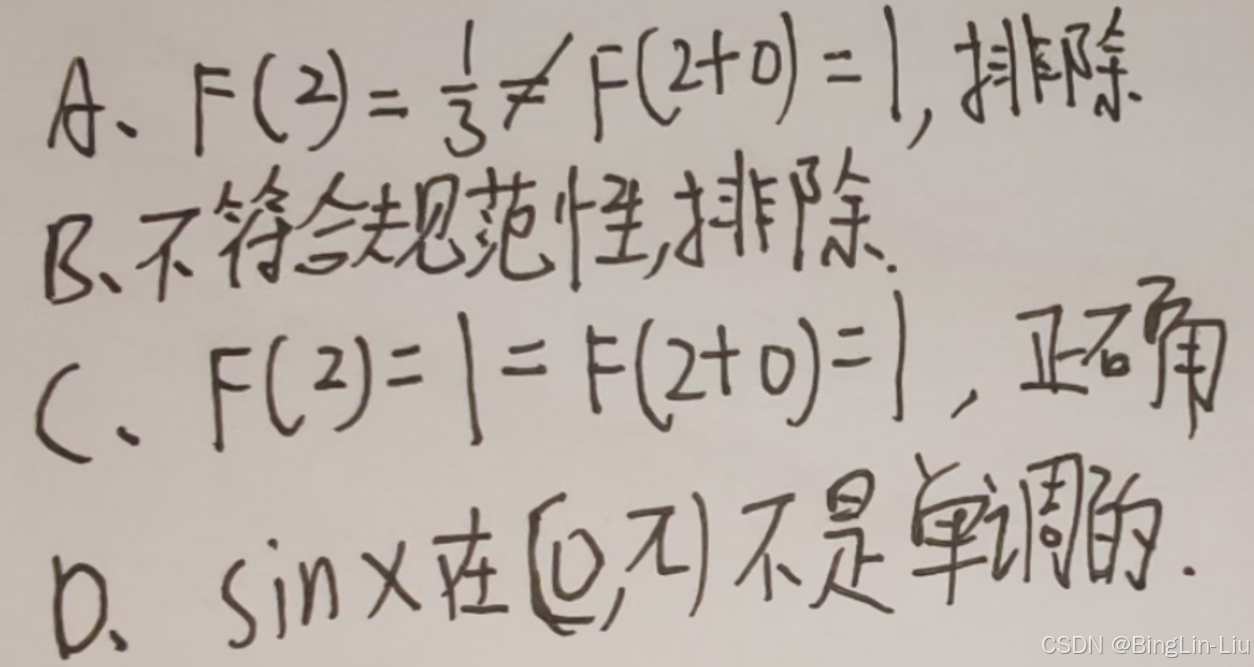 A、F(2)=1/3≠F(2+0)=1,排除.
B、不符合规范性,排除.
C、F(2)=1=F(2+0)=1,正确
D、sinx在[0,π)不是单调的.
CSDN @BingLin-Liu